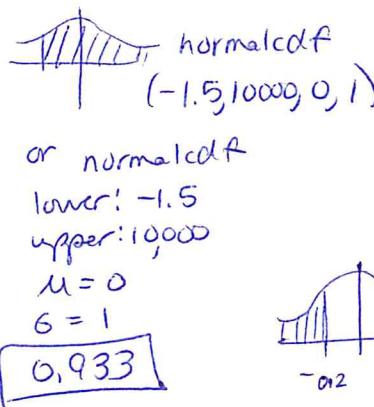 normalcdf
(-1.5, 10000, 0, 1)
or normalcdf
lower: -1.5
upper: 10,000
μ = 0
σ = 1
0,933
-0.2